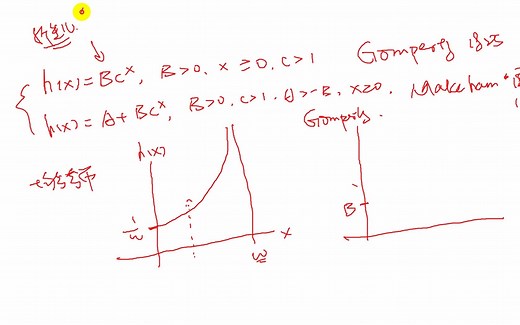 h(x) = Bc^x, B>0, x≥0, c>1 Gompertz
h(x) = A + Bc^x, B>0, c>1, A>-B, x≥0, Makeham
Gompertz.
h(x)
1/ω
x
ω
B